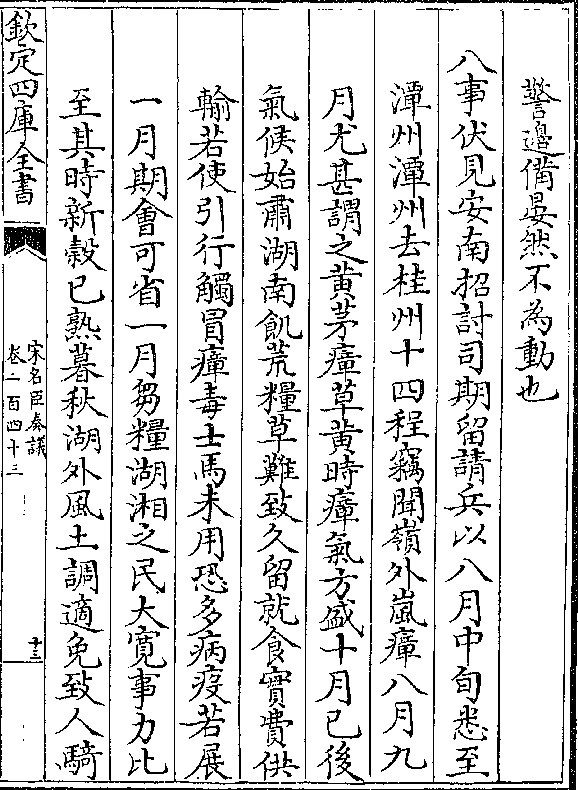 警邊備晏然不為動也
八事伏見安南招討司期留請兵以八月中旬悉至
潭州潭州去桂州十四程竊聞嶺外嵐瘴八月九
月尤甚謂之黄茅瘴草黄時瘴氣方盛十月已後
氣候始肅湖南飢荒糧草難致久留就食實費供
輸若使引行觸冒瘴毒士馬未用恐多病疫若展
一月期會可省一月芻糧湖湘之民大寛事力比
至其時新榖已熟暮秋湖外風土調適免致人騎
欽定四庫全書
宋名臣奏議
卷一百四十三
十三